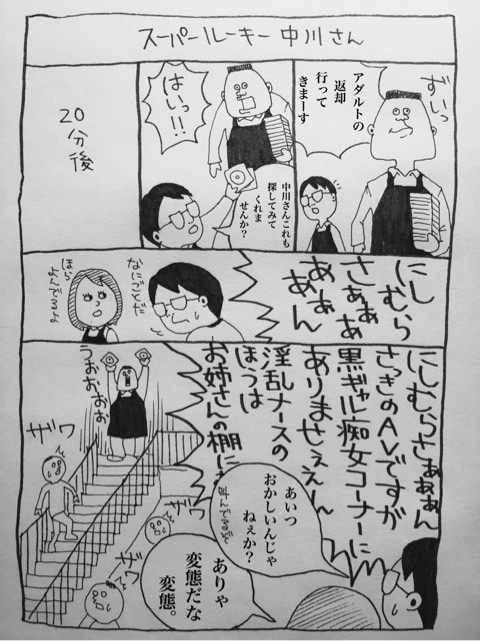 スーパールーキー中川さん
ずいっ
アダルトの
返却
行って
きまーす
はいっ!!
中川さんこれも
探してみて
くれま
せんか?
20分後
にし
むら
さぁぁぁ
あぁぁ
あん
なにごとだ
ほら
よんでるよ
にしむらさぁぁぁん
さっきのAVですが
黒ギャル痴女コーナーに
ありませぇぇん
淫乱ナースの
ほうは
お姉さんの棚に
うおぉおぉ
ザワ
ザワ
ザワ
叫んでるぞ
あいつ
おかしいんじゃ
ねぇか?
ありゃ
変態だな
変態。